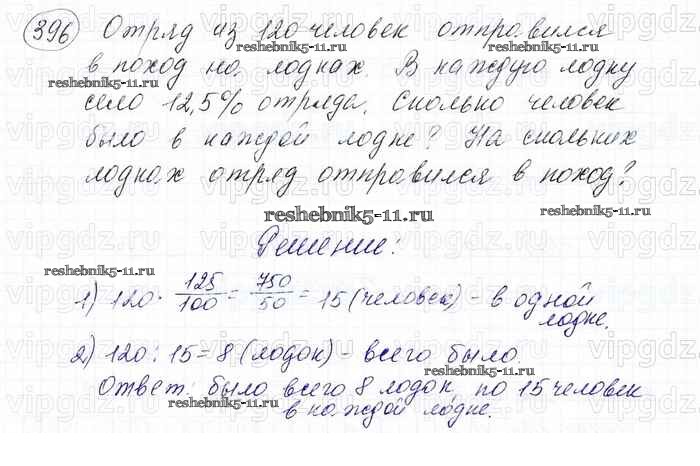 396 Отряд из 120 человек отправился
reshebnik5-11.ru reshebnik5-11.ru
в поход на лодках. В каждую лодку
село 12,5% отряда. Сколько человек
было в каждой лодке? На скольких
лодках отряд отправился в поход?
reshebnik5-11.ru reshebnik5-11.ru
Решение:
reshebnik5-11.ru reshebnik5-11.ru
1) 120 · 125/100 = 750/50 = 15 (человек) - в одной
лодке.
2) 120 : 15 = 8 (лодок) - всего было.
Ответ: было всего 8 лодок, по 15 человек
reshebnik5-11.ru reshebnik5-11.ru
в каждой лодке.
vipgdz.ru